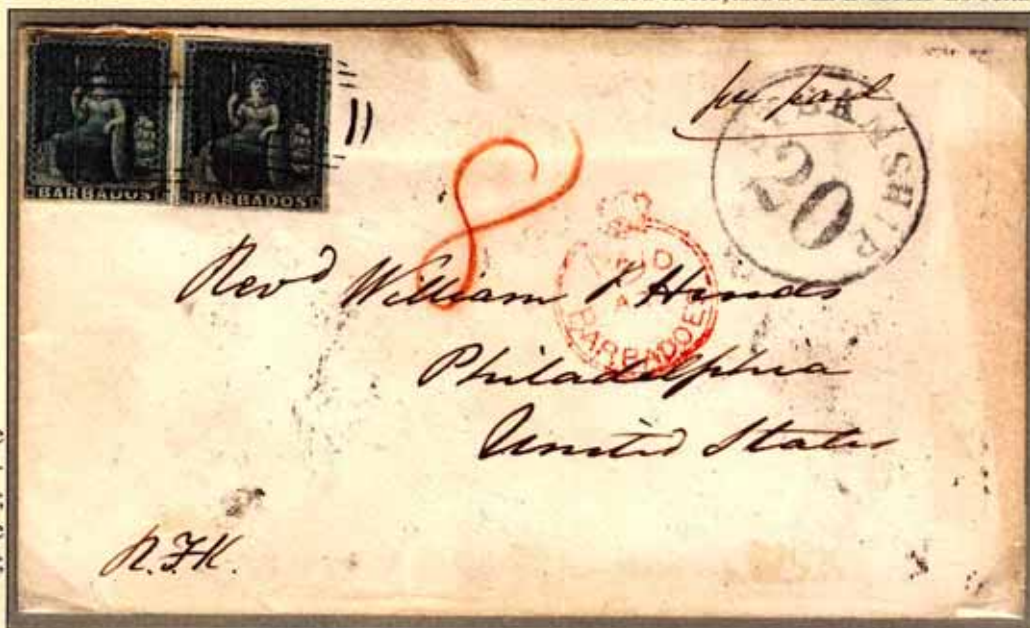 BARBADOS BARBADOS
8
STEAMSHIP
20
PAID
A
BARBADOES
Revd William P Hinds
Philadelphia
United States